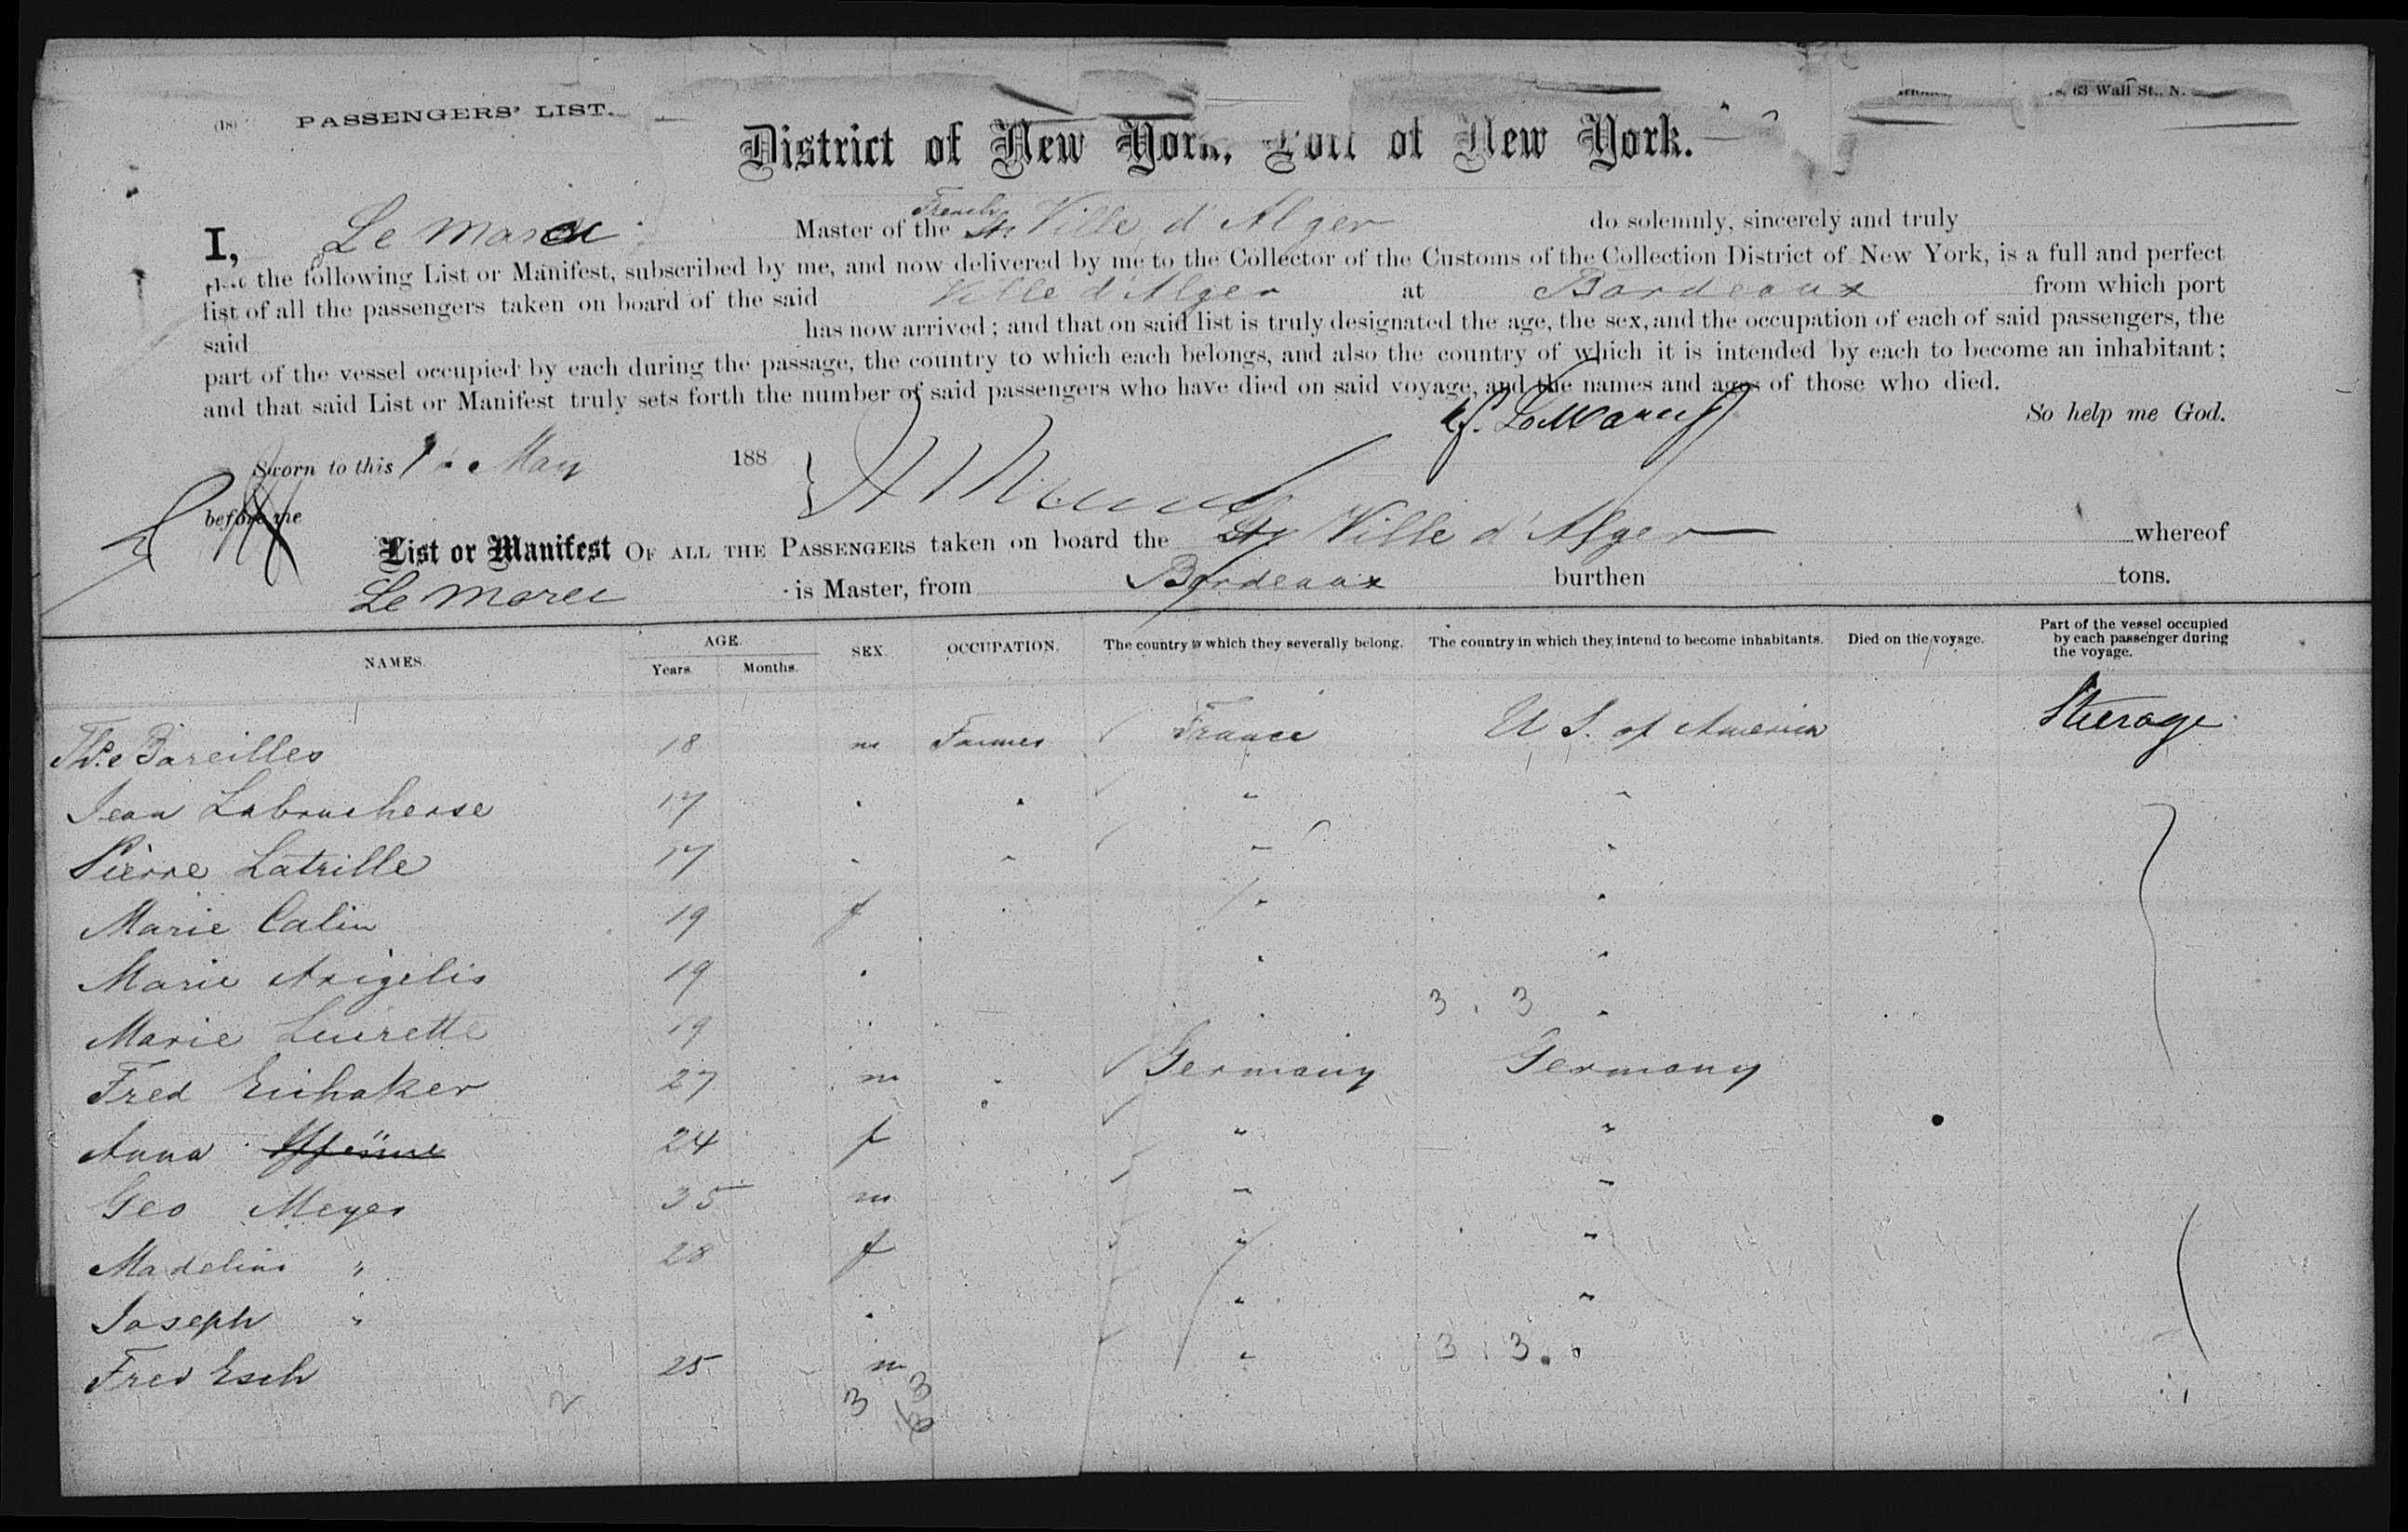 (18) PASSENGERS' LIST. 63 Wall St., N.
District of New York, Port of New York.
I, Le Marec Master of the French Ss Ville d'Alger do solemnly, sincerely and truly
that the following List or Manifest, subscribed by me, and now delivered by me to the Collector of the Customs of the Collection District of New York, is a full and perfect
list of all the passengers taken on board of the said Ville d'Alger at Bordeaux from which port
said has now arrived; and that on said list is truly designated the age, the sex, and the occupation of each of said passengers, the
part of the vessel occupied by each during the passage, the country to which each belongs, and also the country of which it is intended by each to become an inhabitant;
and that said List or Manifest truly sets forth the number of said passengers who have died on said voyage, and the names and ages of those who died.
So help me God.
Sworn to this May 188
before me
List or Manifest OF ALL THE PASSENGERS taken on board the Ss Ville d'Alger whereof
Le Marec is Master, from Bordeaux burthen tons.
NAMES. AGE. Years. Months. SEX. OCCUPATION. The country to which they severally belong. The country in which they intend to become inhabitants. Died on the voyage. Part of the vessel occupied by each passenger during the voyage.
Bareilles 18 m Farmer France U S. of America Steerage
Jean 17 " " " "
Pierre Latrille 17 " " " "
Marie Calin 19 f " "
Marie 19 " " "
3 . 3
Marie 19 " " "
Fred 27 m " Germany Germany
Anna 24 f " "
Geo Meyer 35 m " "
Madeline " 28 f " "
Joseph " " " "
Fred Esch 25 m " 3 . 3 "
3 3